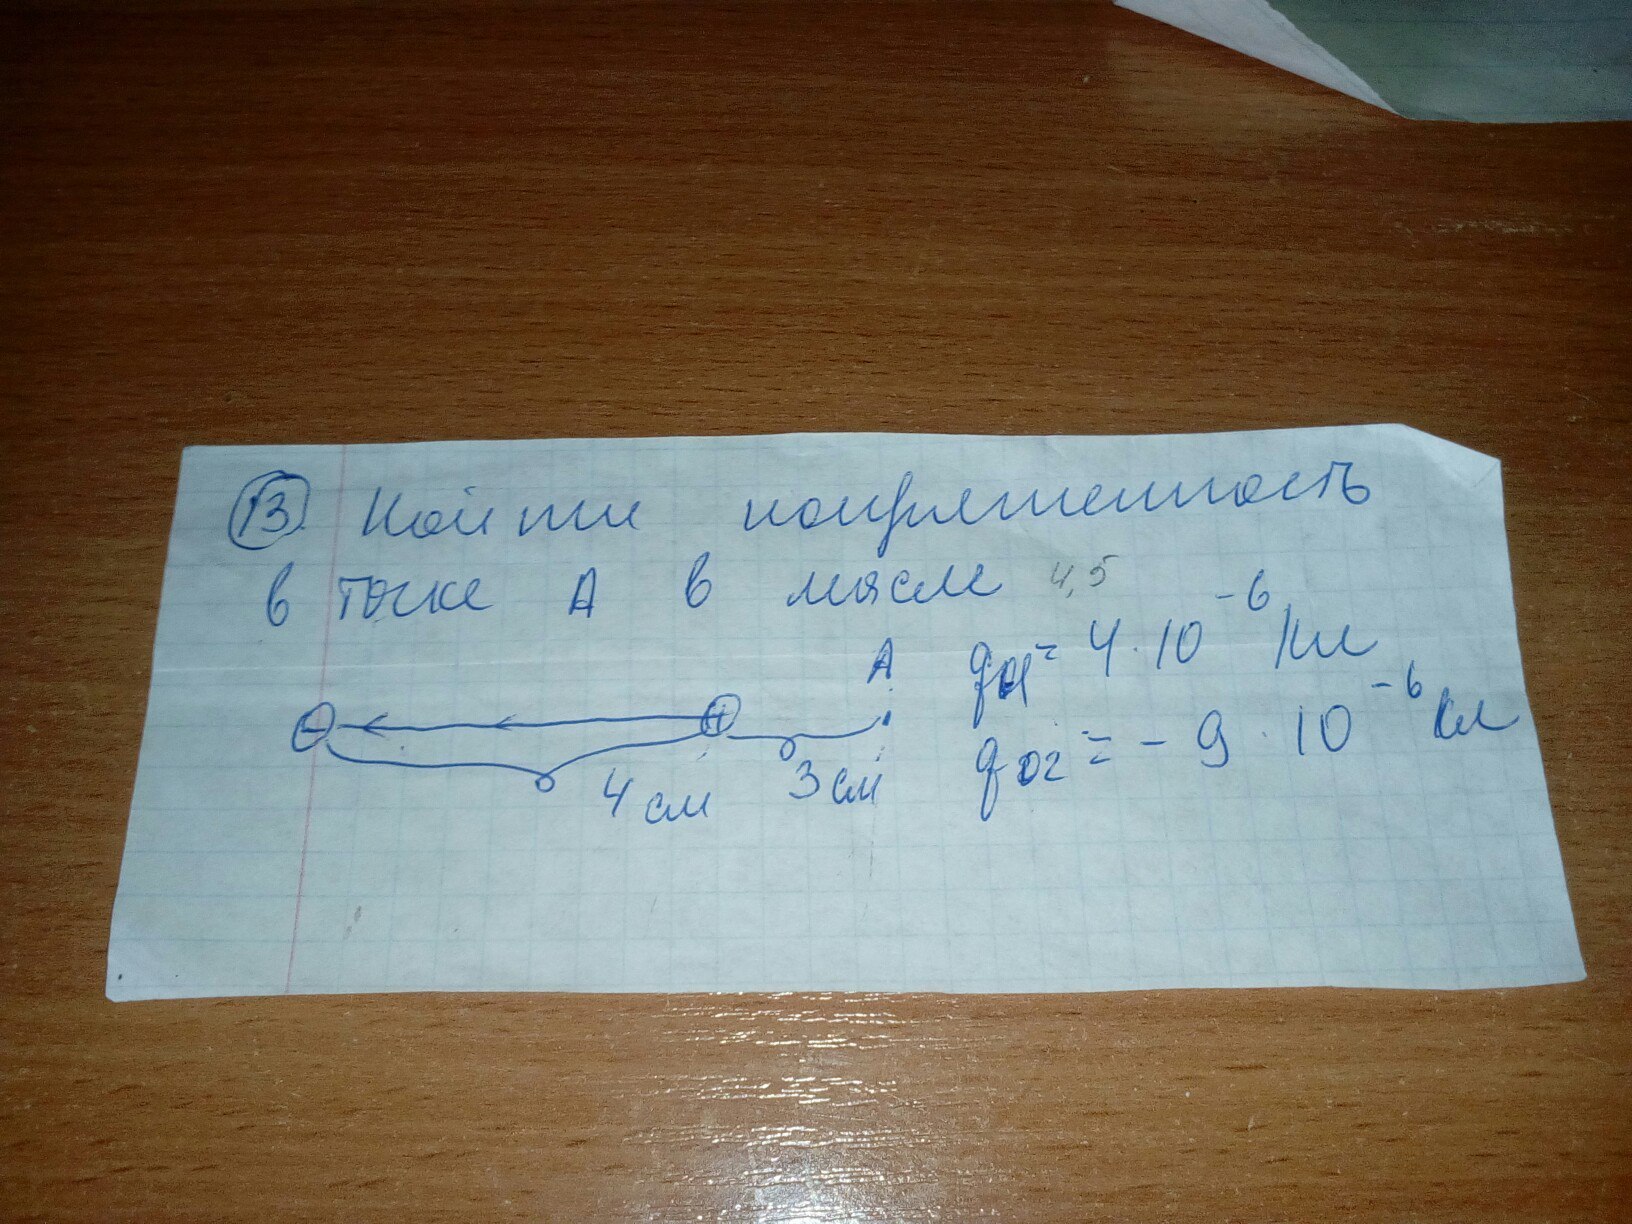 13 Найти напряженность
в точке А в масле 4,5
A q₀₁ = 4·10⁻⁶ Кл
- +
4 см 3 см q₀₂ = -9·10⁻⁶ Кл